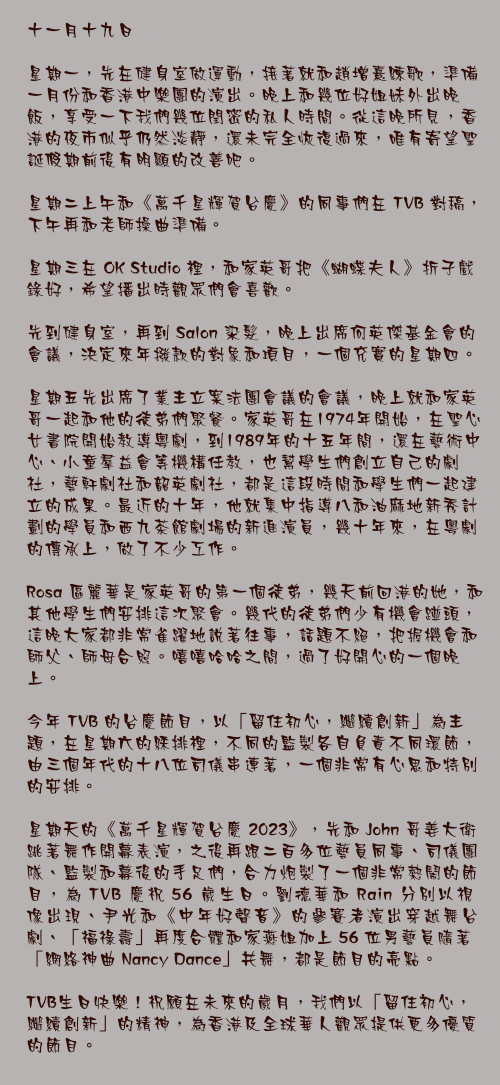 十一月十九日
星期一，先在健身室做運動，接著就和趙增熹練歌，準備
一月份和香港中樂團的演出。晚上和幾位好姐妹外出晚
飯，享受一下我們幾位閨蜜的私人時間。從這晚所見，香
港的夜市似乎仍然淡靜，還未完全恢復過來，唯有寄望聖
誕假期前後有明顯的改善吧。
星期二上午和《萬千星輝賀台慶》的同事們在 TVB 對稿，
下午再和老師操曲準備。
星期三在 OK Studio 裡，和家英哥把《蝴蝶夫人》折子戲
錄好，希望播出時觀眾們會喜歡。
先到健身室，再到 Salon 染髮，晚上出席何英傑基金會的
會議，決定來年撥款的對象和項目，一個充實的星期四。
星期五先出席了業主立案法團會議的會議，晚上就和家英
哥一起和他的徒弟們聚餐。家英哥在1974年開始，在聖心
女書院開始教導粵劇，到1989年的十五年間，還在藝術中
心、小童羣益會等機構任教，也幫學生們創立自己的劇
社，藝軒劇社和韶英劇社，都是這段時間和學生們一起建
立的成果。最近的十年，他就集中指導八和油麻地新秀計
劃的學員和西九茶館劇場的新進演員，幾十年來，在粵劇
的傳承上，做了不少工作。
Rosa 區麗華是家英哥的第一個徒弟，幾天前回港的她，和
其他學生們安排這次聚會。幾代的徒弟們少有機會碰頭，
這晚大家都非常雀躍地說著往事，話題不絕，把握機會和
師父、師母合照。嘻嘻哈哈之間，過了好開心的一個晚
上。
今年 TVB 的台慶節目，以「留住初心，繼續創新」為主
題，在星期六的綵排裡，不同的監製各自負責不同環節，
由三個年代的十八位司儀串連著，一個非常有心思和特別
的安排。
星期天的《萬千星輝賀台慶 2023》，先和 John 哥姜大衛
跳著舞作開幕表演，之後再跟二百多位藝員同事、司儀團
隊、監製和幕後的手足們，合力炮製了一個非常熱鬧的節
目，為 TVB 慶祝 56 歲生日。劉德華和 Rain 分別以視
像出現、尹光和《中年好聲音》的參賽者演出穿越舞台
劇、「福祿壽」再度合體和家燕姐加上 56 位男藝員隨著
「網路神曲 Nancy Dance」共舞，都是節目的亮點。
TVB生日快樂！祝願在未來的歲月，我們以「留住初心，
繼續創新」的精神，為香港及全球華人觀眾提供更多優質
的節目。